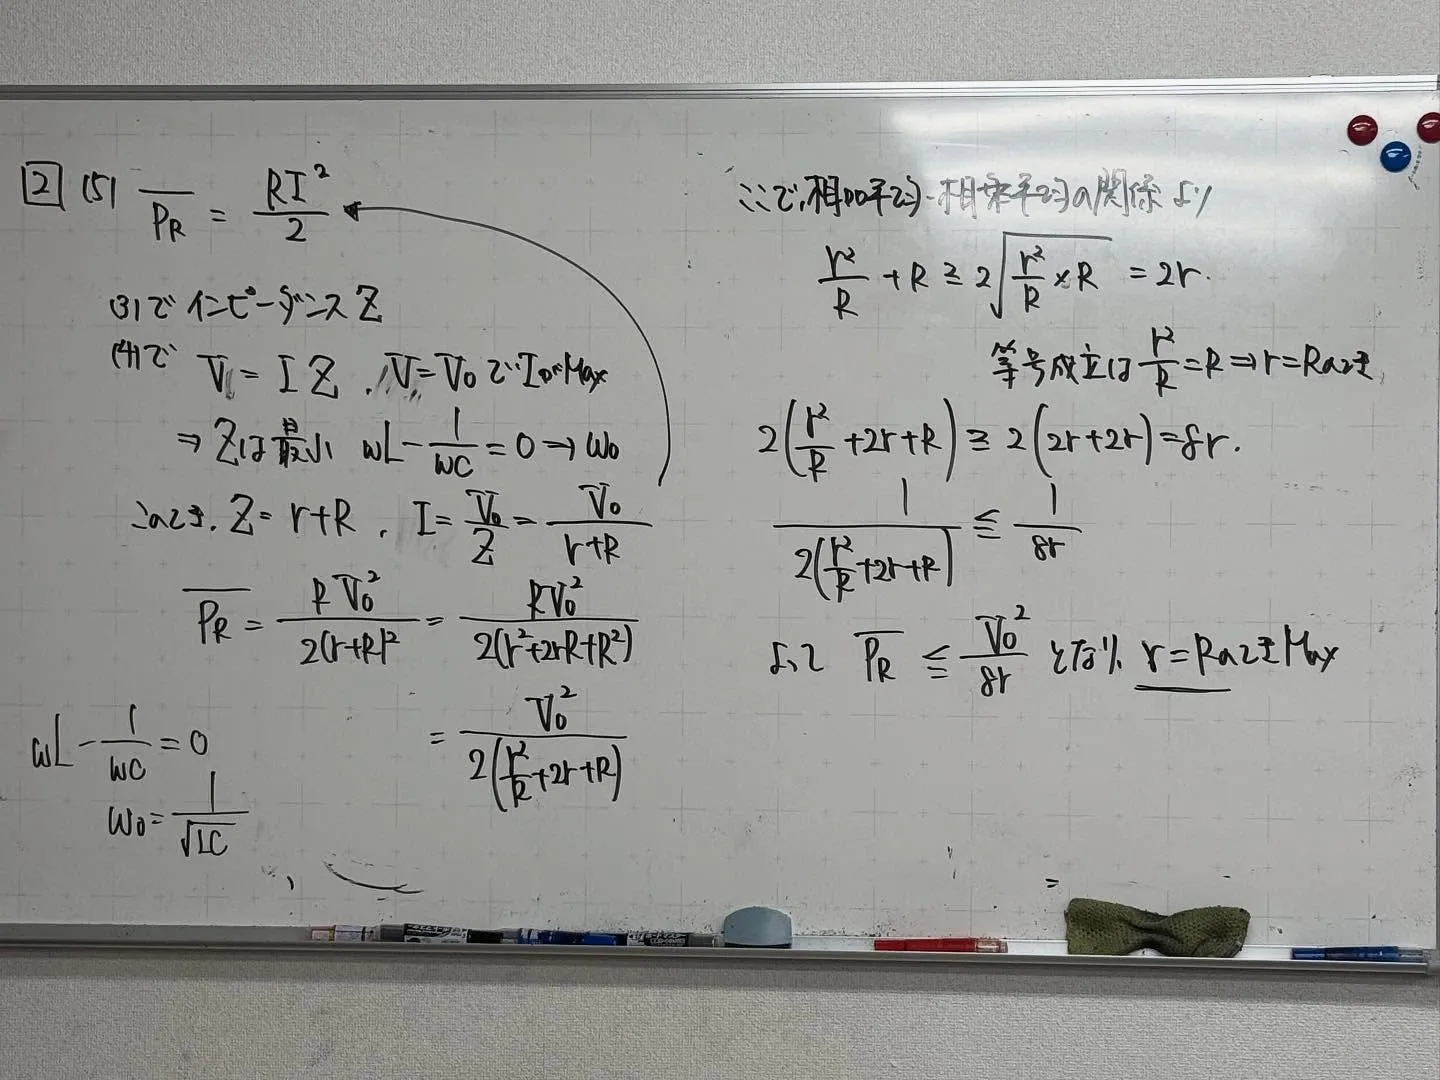 2 (5) P_R = RI²/2
(3)で インピーダンス Z
(4)で V = IZ . V = V₀ で I₀が Max
⇒ Zは最小 ωL - 1/ωC = 0 → ω₀
このとき. Z = r+R . I = V₀/Z = V₀/(r+R)
P_R = RV₀²/2(r+R)² = RV₀²/2(r²+2rR+R²)
= V₀²/2(r²/R+2r+R)
ωL - 1/ωC = 0
ω₀ = 1/√LC
ここで,相加平均-相乗平均の関係より
r²/R + R ≧ 2√(r²/R × R) = 2r.
等号成立は r²/R = R ⇒ r = Rのとき,
2(r²/R + 2r + R) ≧ 2(2r+2r) = 8r.
1/2(r²/R+2r+R) ≦ 1/8r
よって P_R ≦ V₀²/8r となり, r = RのときMax